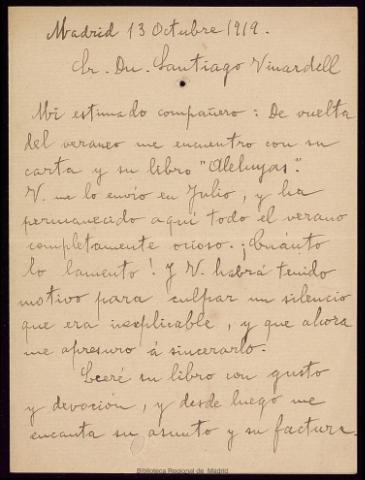 Madrid 13 Octubre 1919.
Sr. Dn. Santiago Vinardell
Mi estimado compañero: De vuelta
del veraneo me encuentro con su
carta y su libro "Aleluyas."
V. me lo envió en Julio, y ha
permanecido aquí todo el verano
completamente ocioso. ¡Cuánto
lo lamento! Y V. habrá tenido
motivo para culpar un silencio
que era inexplicable, y que ahora
me apresuro á sincerarlo.
Leeré su libro con gusto
y devoción, y desde luego me
encanta su asunto y su factura.
Biblioteca Regional de Madrid